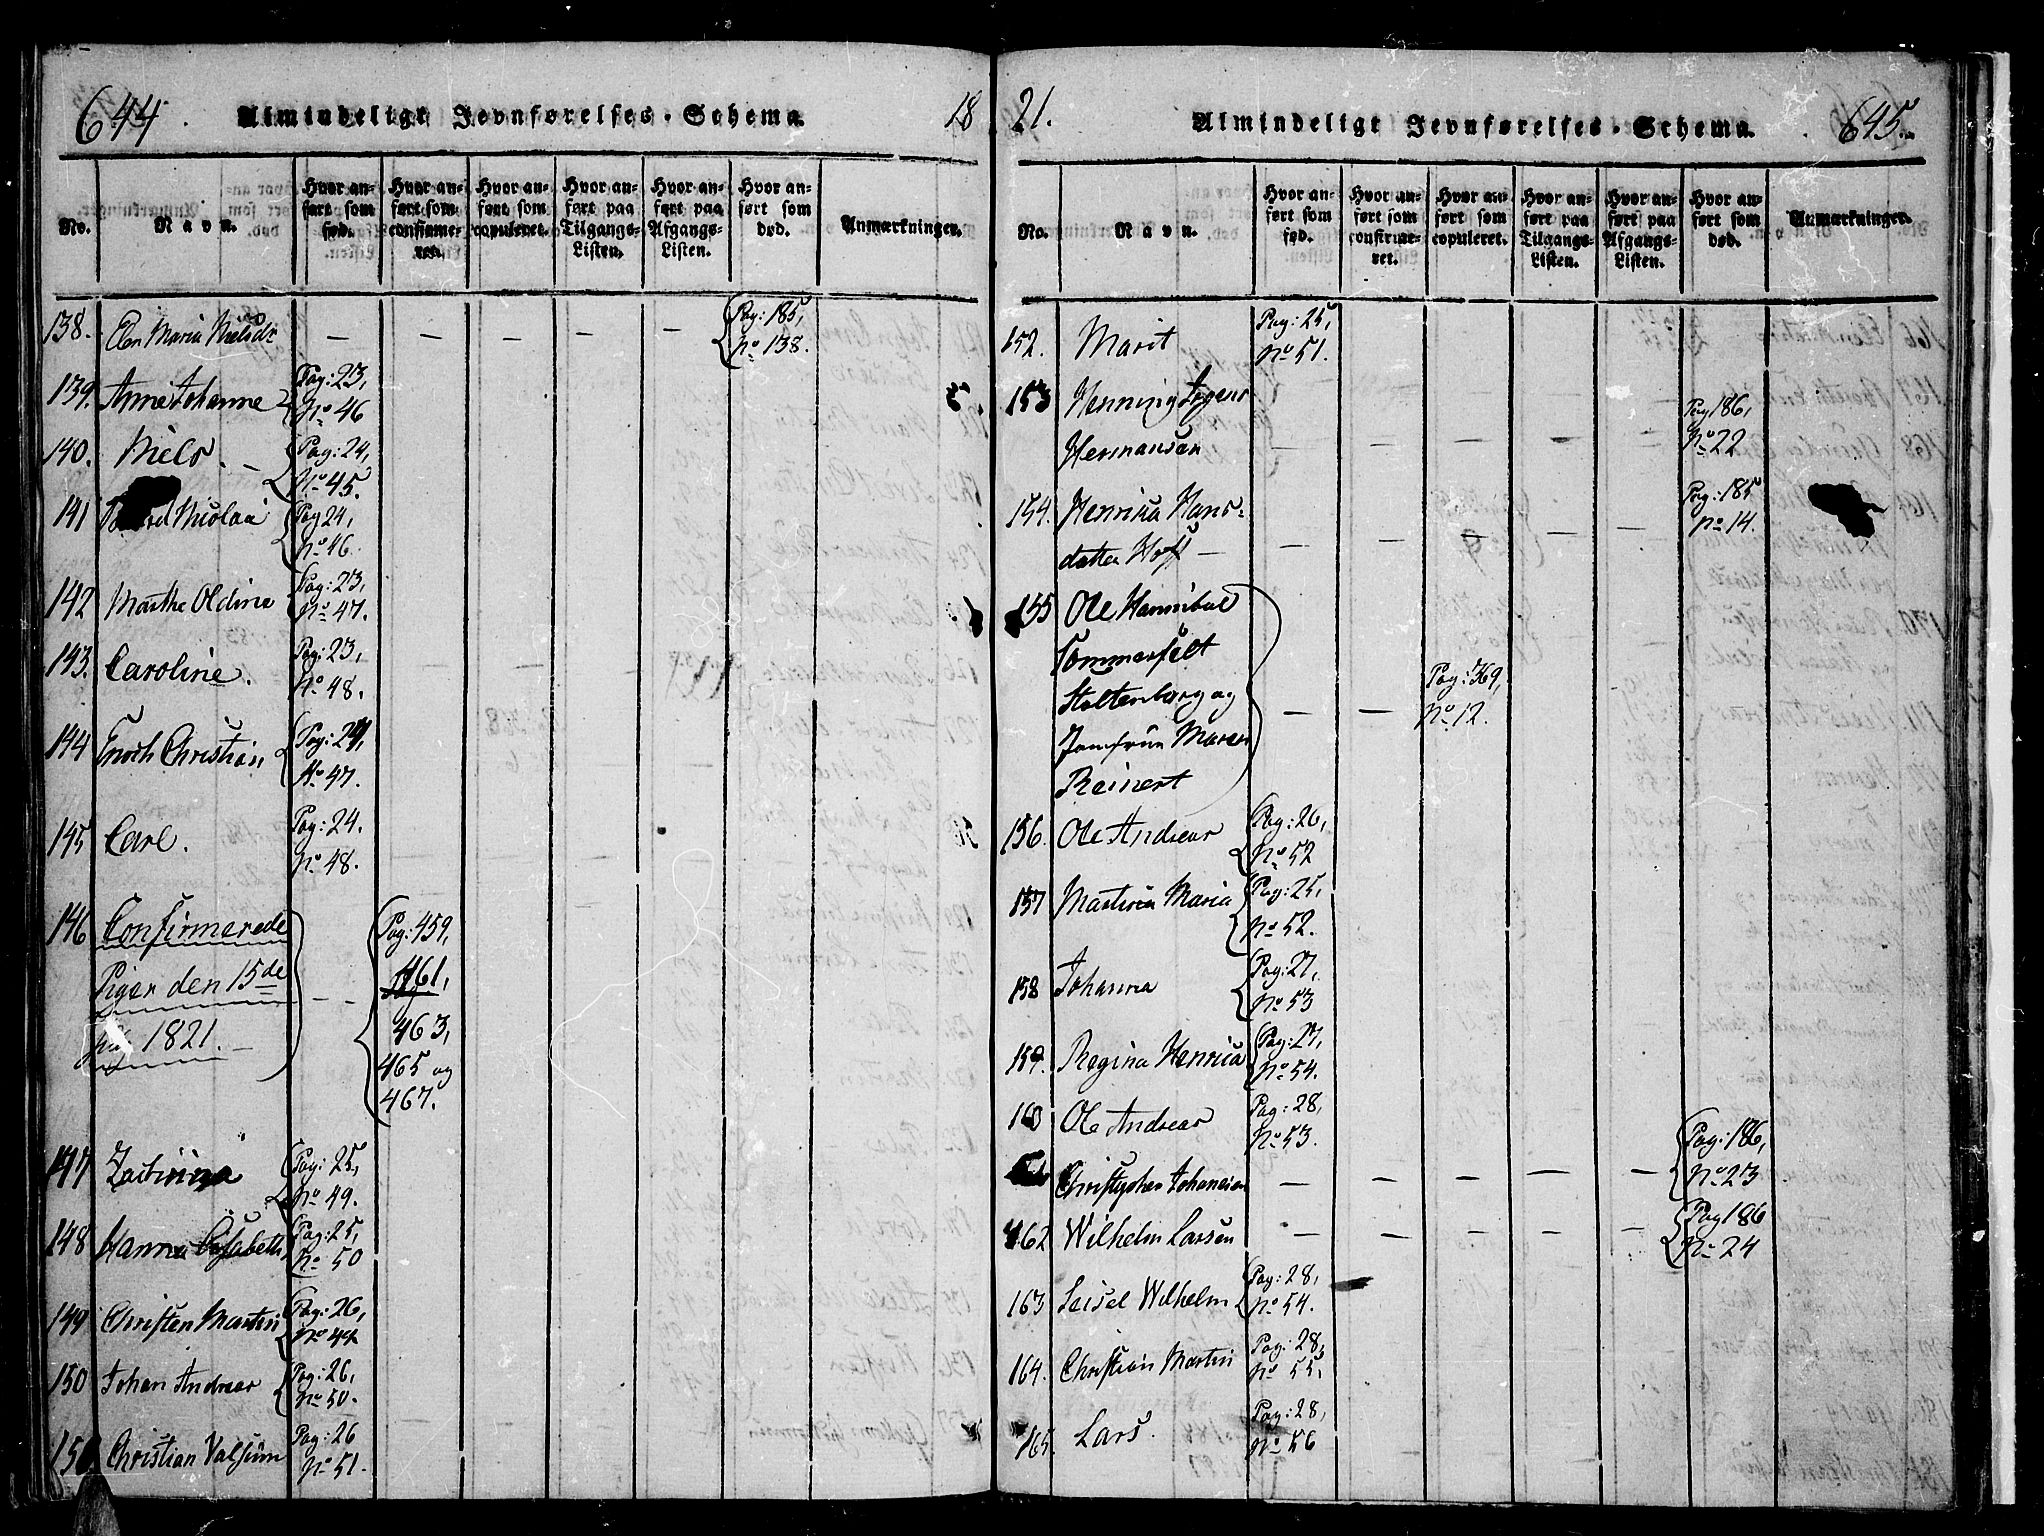 644. Almindeligt Jevnførelses-Schema. 18
No. Navn. Hvor anført som fød. Hvor anført som confirmeret. Hvor anført som copuleret. Hvor anført paa Tilgangs-Listen. Hvor anført paa Afgangs-Listen. Hvor anført som død. Anmærkninger.
138. Elen Maria Nielsdr — — — — — Pag: 185,
No 138.
139. Anne Johanne Pag: 23,
No 46
140. Niels. — Pag: 24,
No 45.
141 Nicolai Pag 24,
No 46.
142 Marthe Oldine Pag: 23,
No 47.
143. Caroline. Pag: 23,
No 48.
144 Enoch Christian Pag: 24,
No 47.
145 Carl. Pag: 24.
No 48.
146 Confirmerede
Piger den 15de
1821. — — — Pag: 459,
461,
463,
465 og
467.
147 Pag: 25,
No 49.
148 Hanna Elisabeth Pag: 25,
No 50
149 Christen Martin Pag: 26,
No 49
150 Johan Andreas Pag: 26,
No 50.
Christian Valsum Pag: 26
No 51.
21. Almindeligt Jevnførelses-Schema. 645.
No. Navn. Hvor anført som fød. Hvor anført som confirmeret. Hvor anført som copuleret. Hvor anført paa Tilgangs-Listen. Hvor anført paa Afgangs-Listen. Hvor anført som død. Anmærkninger.
152. Marit Pag: 25,
No 51.
153 Henning
Hermansen — — — — — Pag 186,
No 22
154. Henrika Hans-
datter Hoff — — — — — — Pag: 185
No 14.
155 Ole Hannibal
Sommerfelt
Stoltenberg og
Jomfrue Maren
Reinert — — Pag: 369,
No 12.
156. Ole Andreas Pag: 26,
No 52
157 Martina Maria Pag: 25,
No 52.
158 Johanna Pag: 27,
No 53
159. Regina Henrica Pag: 27,
No 54.
160 Ole Andreas Pag: 28,
No 53.
Christopher Johansen — — — — — Pag: 186,
No 23
162 Wilhelm Larsen — — — — — Pag 186
No 24
163 Wilhelm Pag: 28,
No 54.
164. Christian Martin Pag: 28,
No 55,
165. Lars. Pag: 28,
No 56